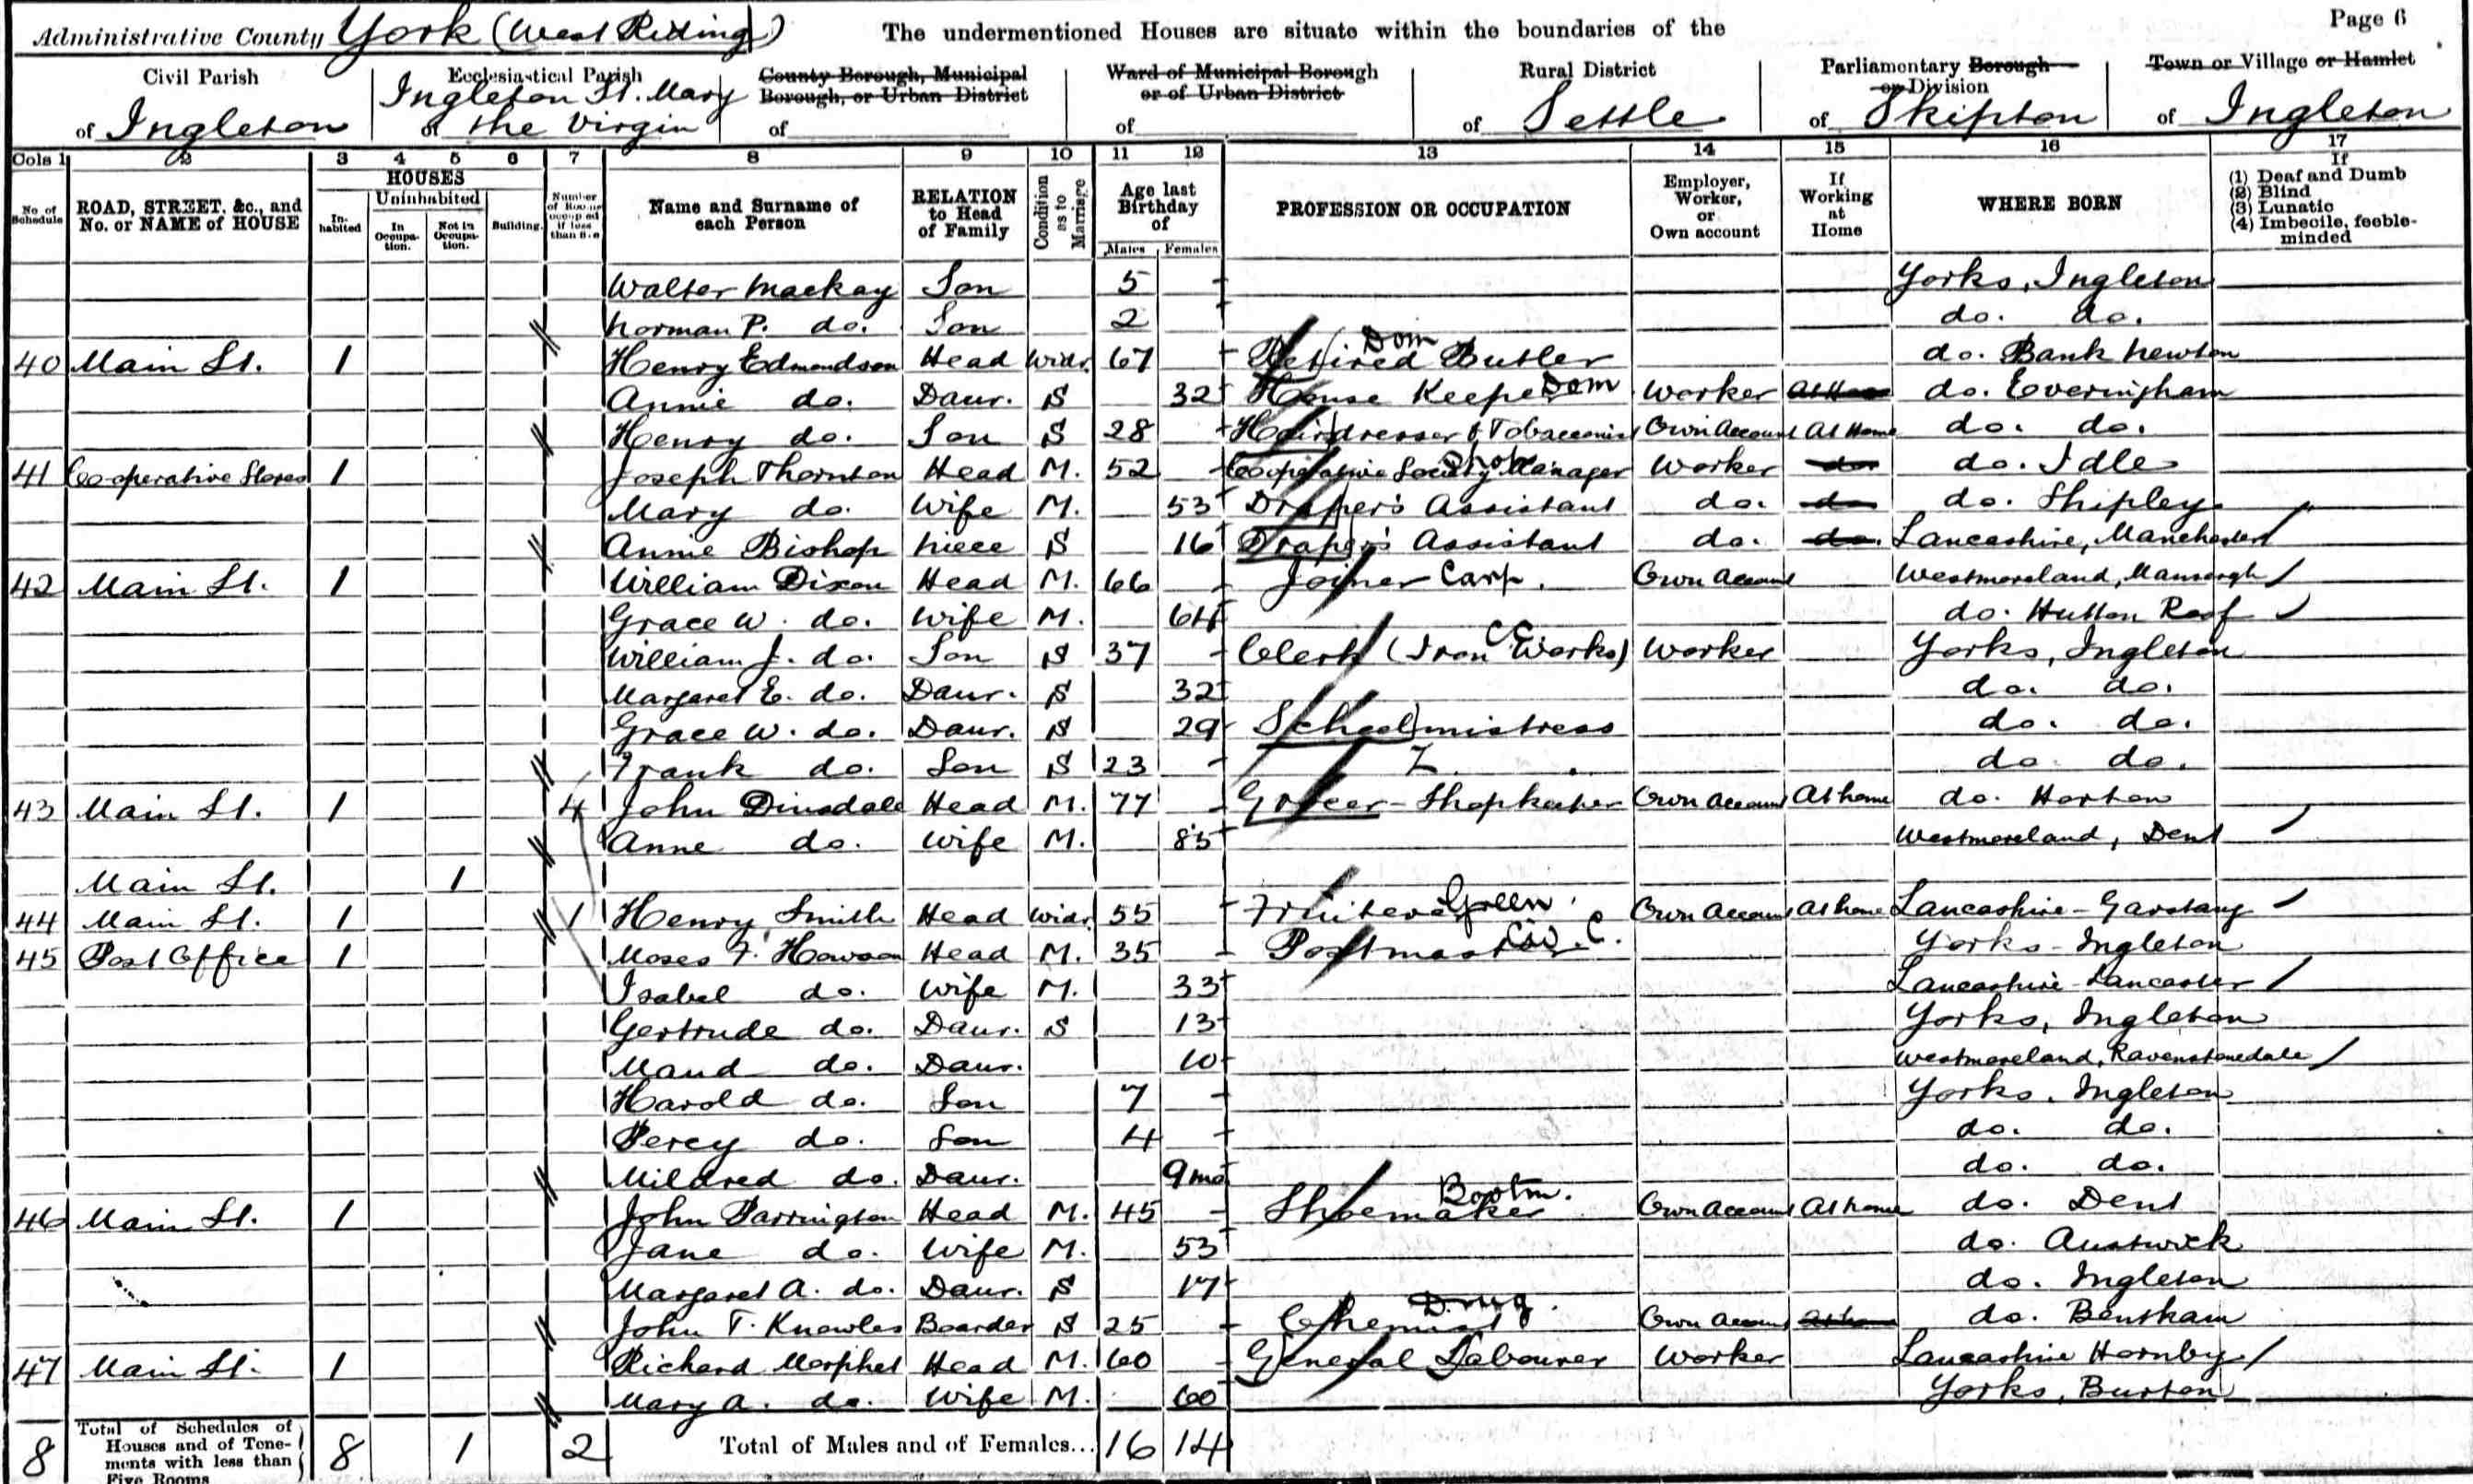 Page 6
Administrative County York (West Riding) The undermentioned Houses are situate within the boundaries of the
Civil Parish of Ingleton
Ecclesiastical Parish of Ingleton St. Mary the Virgin
County Borough, Municipal Borough, or Urban District of
Ward of Municipal Borough or of Urban District of
Rural District of Settle
Parliamentary Borough or Division of Skipton
Town or Village or Hamlet of Ingleton
Cols 1 2 3 4 5 6 7 8 9 10 11 12 13 14 15 16 17
No. of Schedule
ROAD, STREET, &c., and No. or NAME of HOUSE
HOUSES
Inhabited
Uninhabited
In Occupation.
Not in Occupation.
Building.
Number of Rooms occupied if less than five
Name and Surname of each Person
RELATION to Head of Family
Condition as to Marriage
Age last Birthday of
Males Females
PROFESSION OR OCCUPATION
Employer, Worker, or Own account
If Working at Home
WHERE BORN
If
(1) Deaf and Dumb
(2) Blind
(3) Lunatic
(4) Imbecile, feeble-minded
Walter Mackay Son 5 Yorks, Ingleton
Norman P. do. Son 2 do. do.
40 Main St. 1 Henry Edmondson Head Widr. 67 Retired Butler Dom do. Bank Newton
Annie do. Daur. S 32 House Keeper Dom Worker At Home do. Everingham
Henry do. Son S 28 Hairdresser & Tobacconist Own Account At Home do. do.
41 Co-operative Stores 1 Joseph Thornton Head M. 52 Cooperative Society Shop Manager Worker do. do. Idle
Mary do. Wife M. 53 Draper's Assistant do. do do. Shipley
Annie Bishop Niece S 16 Draper's Assistant do. do. Lancashire, Manchester
42 Main St. 1 William Dixon Head M. 66 Joiner Carp. Own Account Westmoreland, Mansergh
Grace W. do. Wife M. 64 do. Hutton Roof
William J. do. Son S 37 Clerk (Iron Works) CC Worker Yorks, Ingleton
Margaret E. do. Daur. S 32 do. do.
Grace W. do. Daur. S 29 Schoolmistress do. do.
Frank do. Son S 23 do do.
43 Main St. 1 4 John Dinsdale Head M. 77 Grocer - Shopkeeper Own Account At home do. Horton
Anne do. Wife M. 85 Westmoreland, Dent
Main St. 1
44 Main St. 1 1 Henry Smith Head Widr. 55 Fruiterer Green. Own Account At home Lancashire - Garstang
45 Post Office 1 Moses F. Howson Head M. 35 Postmaster Civ. C. Yorks - Ingleton
Isabel do. Wife M. 33 Lancashire - Lancaster
Gertrude do. Daur. S 13 Yorks, Ingleton
Maud do. Daur. 10 Westmoreland, Ravenstonedale
Harold do. Son 7 Yorks. Ingleton
Percy do. Son 4 do. do.
Mildred do. Daur. 9mo do. do.
46 Main St. 1 John Parrington Head M. 45 Shoemaker Bootm. Own Account At home do. Dent
Jane do. Wife M. 53 do. Austwick
Margaret A. do. Daur. S 17 do. Ingleton
John T. Knowles Boarder S 25 Chemist Drug. Own Account At home do. Bentham
47 Main St. 1 Richard Morphet Head M. 60 General Labourer Worker Lancashire Hornby
Mary A. do. Wife M. 60 Yorks, Burton
8 Total of Schedules of Houses and of Tenements with less than Five Rooms 8 1 2 Total of Males and of Females... 16 14